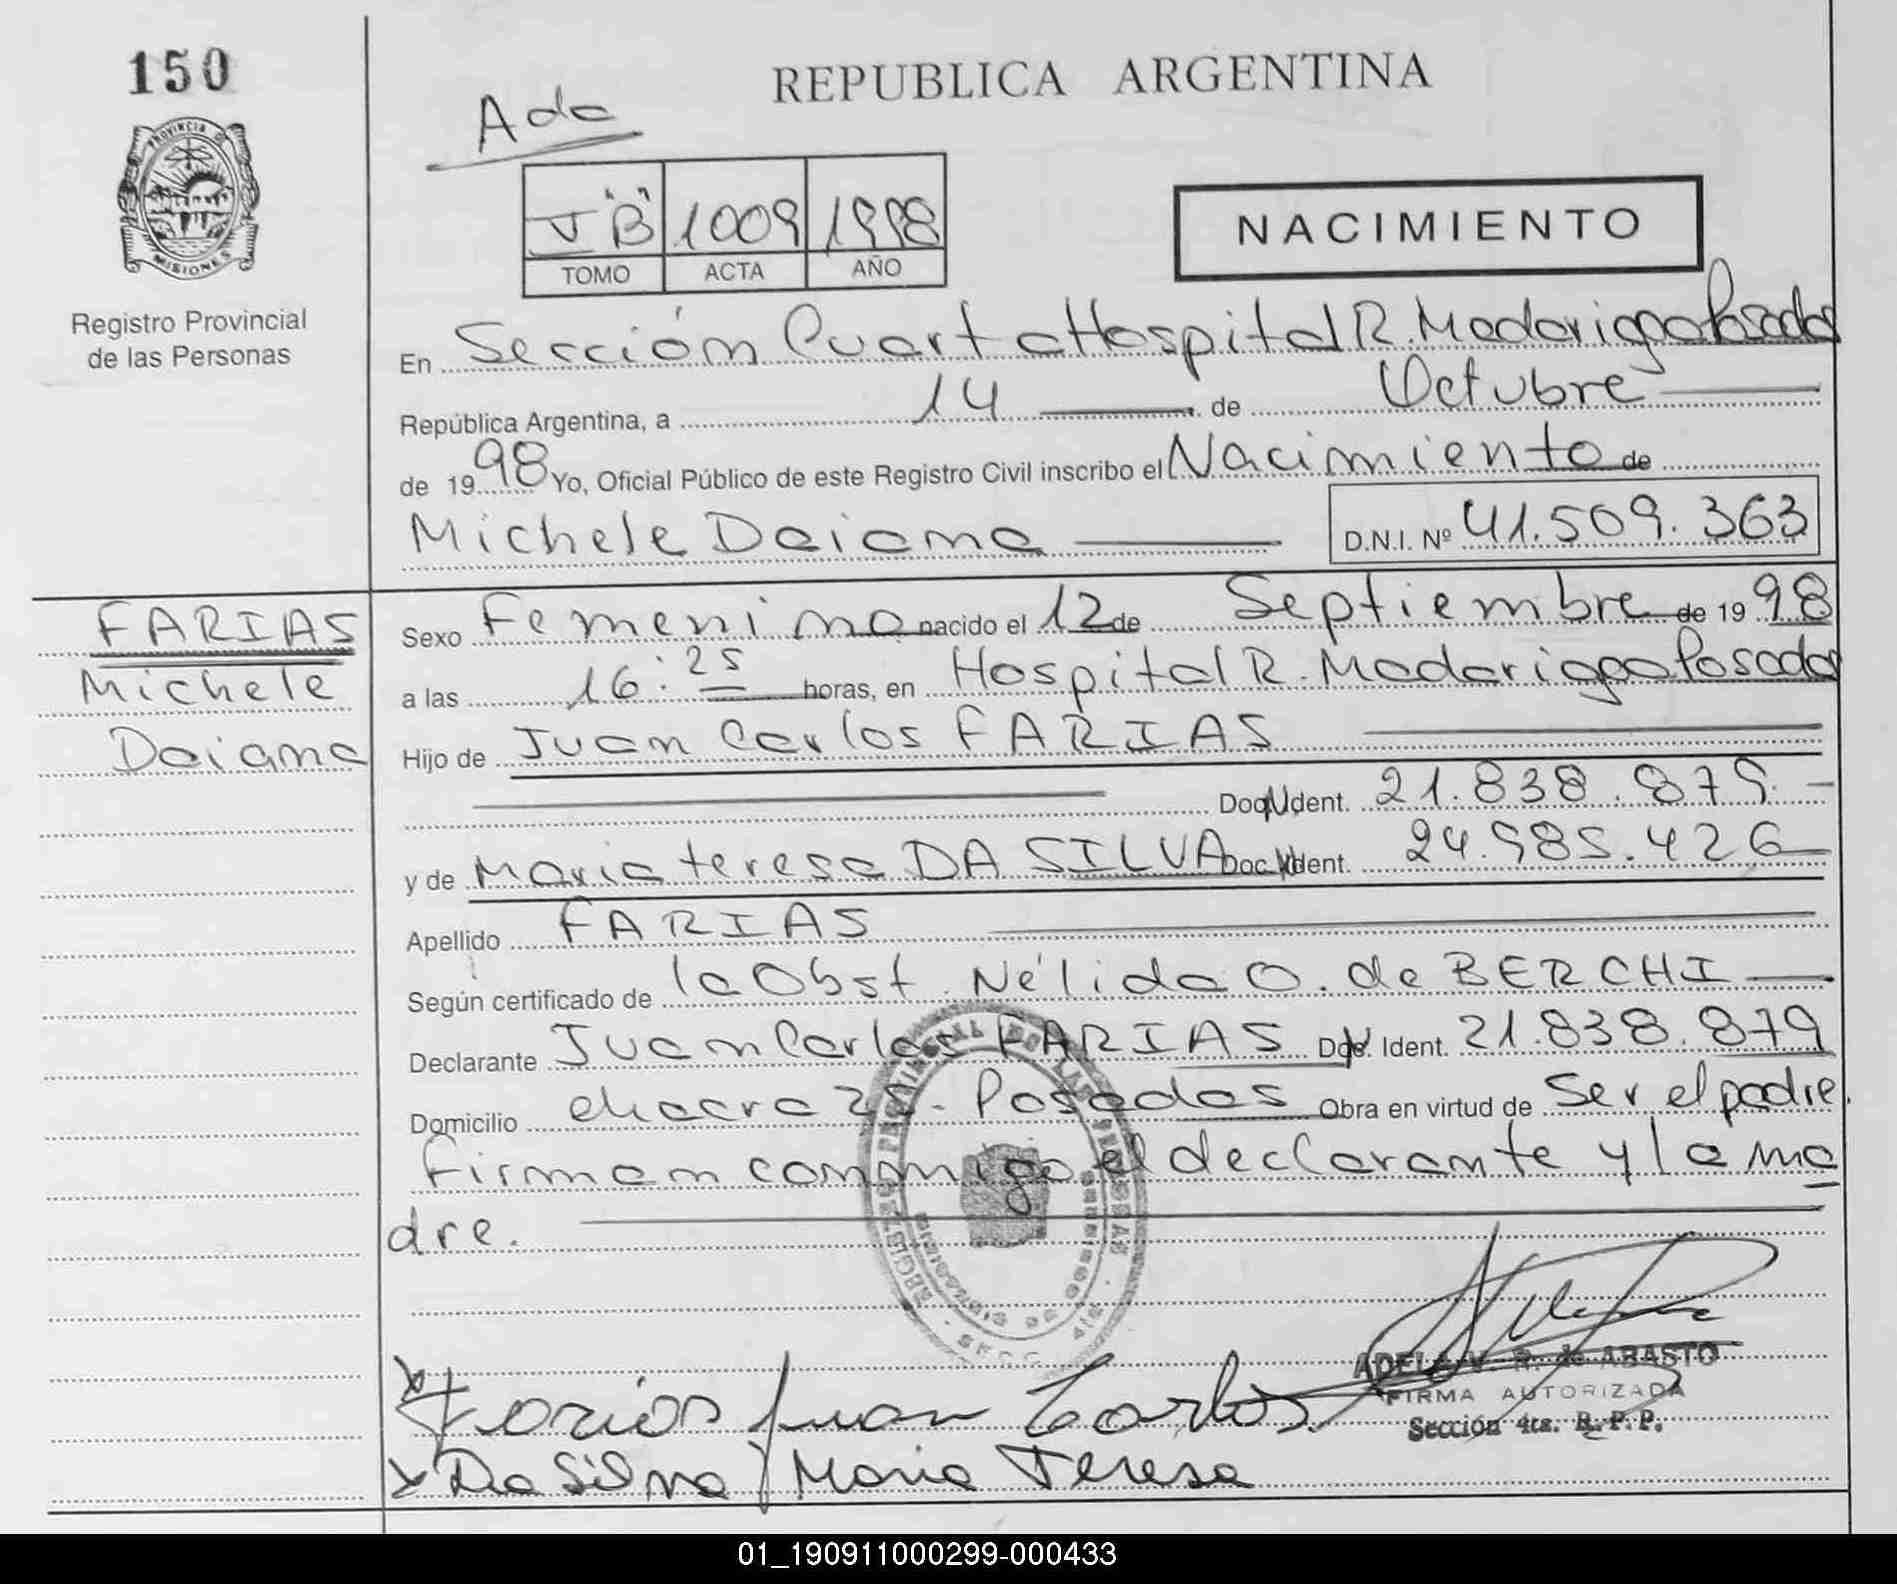 150
REPUBLICA ARGENTINA
Ada
PROVINCIA DE
MISIONES
"B" 1009 1998
TOMO ACTA AÑO
NACIMIENTO
Registro Provincial
de las Personas
En Sección Cuarta Hospital R. Madariaga Posadas
República Argentina, a 14 de Octubre
de 1998 Yo, Oficial Público de este Registro Civil inscribo el Nacimiento de
Michele Daiana D.N.I. Nº 41.509.363
FARIAS
Michele
Daiana
Sexo Femenino nacido el 12 de Septiembre de 1998
a las 16:25 horas, en Hospital R. Madariaga Posadas
Hijo de Juan Carlos FARIAS
Doc. Ident. 21.838.879
y de Maria teresa DA SILVA Doc. Ident. 24.985.426
Apellido FARIAS
Según certificado de la Obst. Nélida O. de BERCHI
Declarante Juan Carlos FARIAS Doc. Ident. 21.838.879
Domicilio chacra Posadas Obra en virtud de Ser el padre.
Firman conmigo el declarante y la ma
dre.
ADELA V. R. de ABASTO
FIRMA AUTORIZADA
Sección 4ta. R. P. P.
Farias Juan Carlos
Da Silva Maria Teresa
01_190911000299-000433